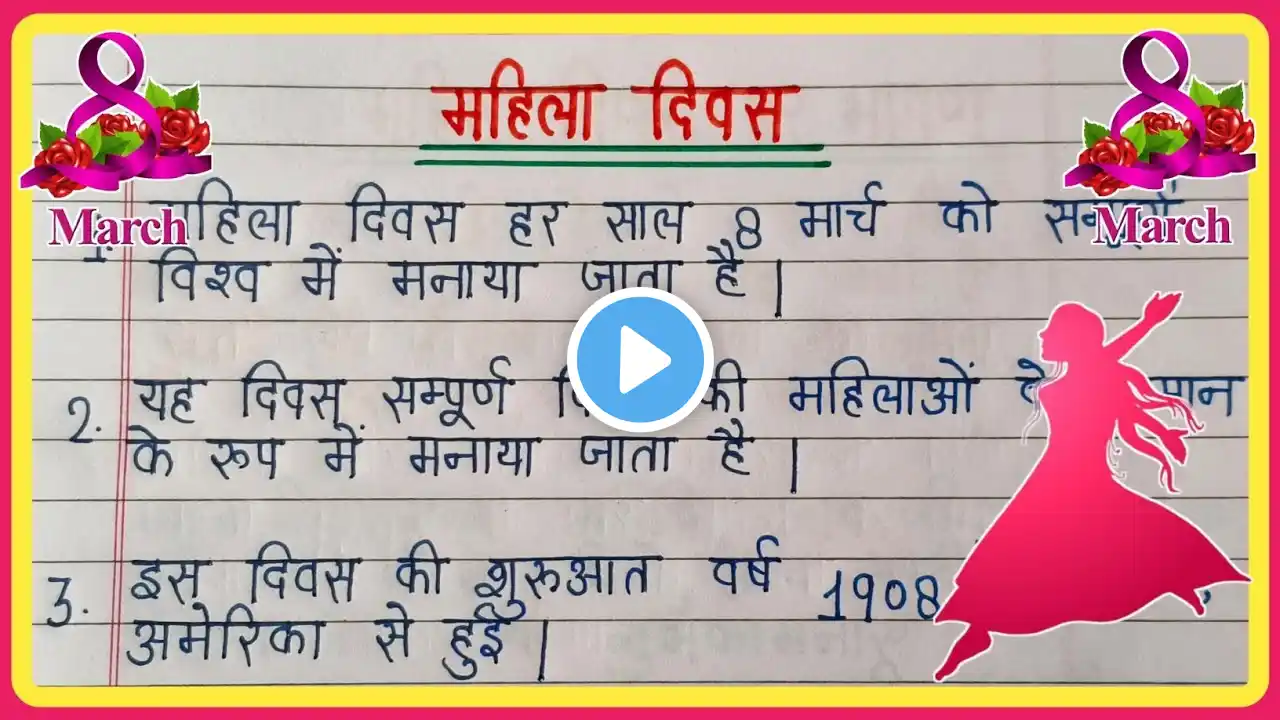 8 March
8 March
महिला दिवस
1. महिला दिवस हर साल 8 मार्च को
विश्व में मनाया जाता है |
2. यह दिवस सम्पूर्ण की महिलाओं
के रूप में मनाया जाता है |
3. इस दिवस की शुरुआत वर्ष 1908
अमेरिका से हुई |